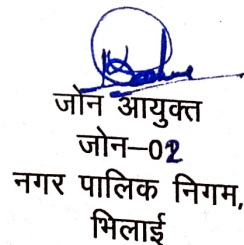 जोन आयुक्त
जोन–02
नगर पालिक निगम,
भिलाई